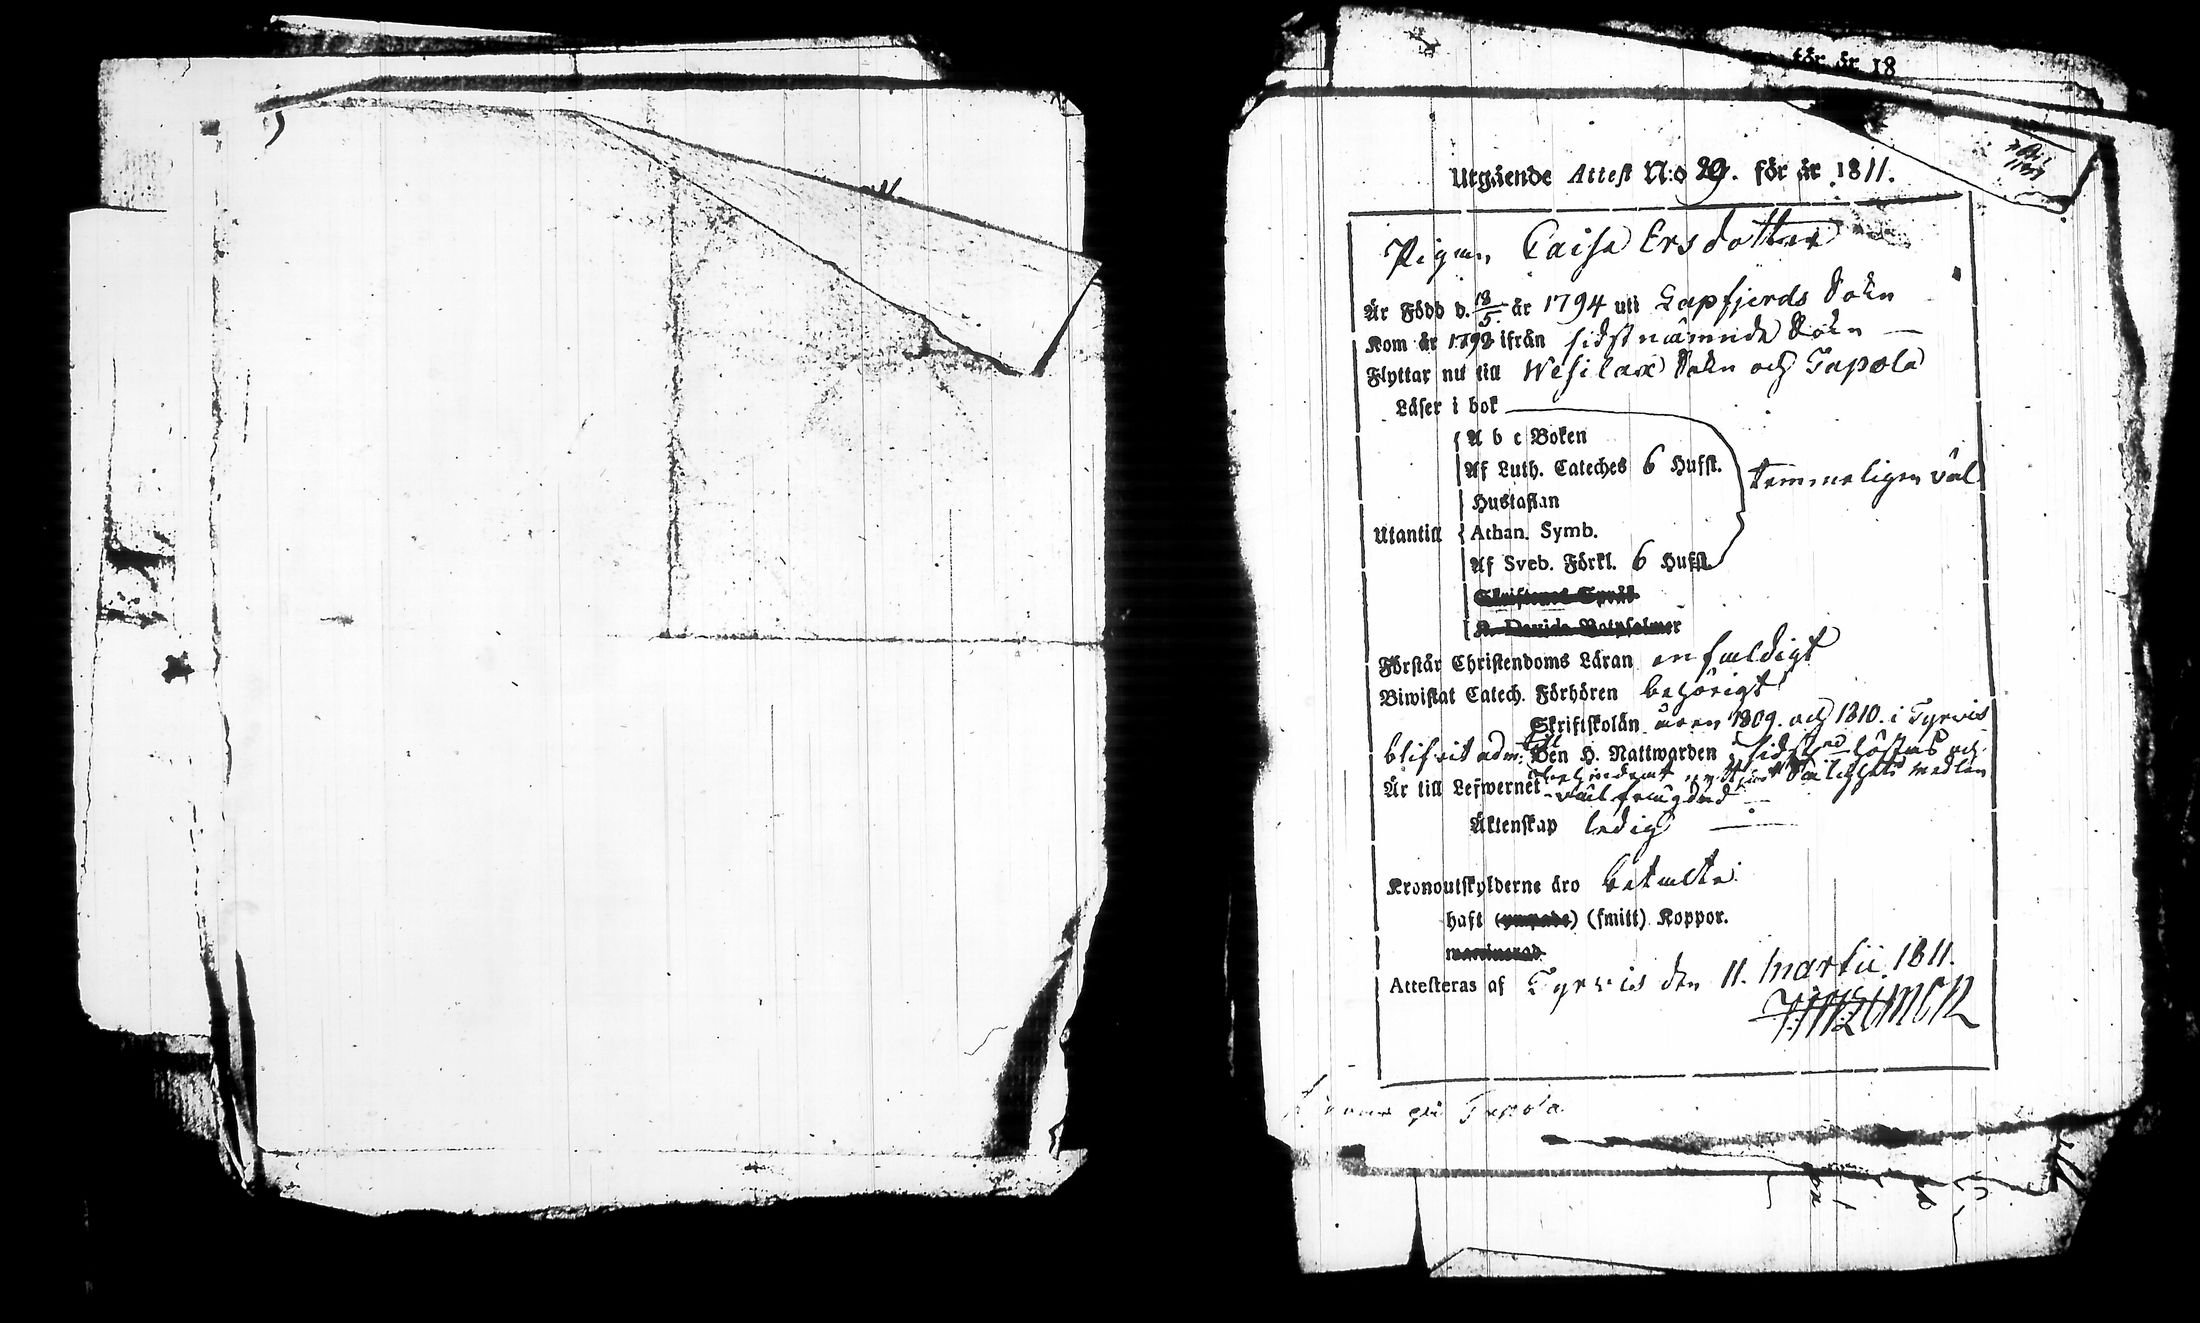 för år 18
Utgående Attest N:o 29. för år 1811.
Pigan Caisa Ersdotter
År Född d. 18/5 år 1794 uti Lapfjerds Sokn
Kom år 1792 ifrån sidstnämnde Sokn
Flyttar nu till Wesilax Sokn och Tapola
Läser i bok
A b c Boken
Af Luth. Cateches 6 Hufst.
temmeligen väl
Hustaflan
Utantill Athan. Symb.
Af Sveb. Förkl. 6 Hufst.
Skriftenes Språk
K. Davids Botpsalmer
Förstår Christendoms Läran enfaldigt
Biwistat Catech. Förhören behörigt
Skriftskolän åren 1809. och 1810. i Tyrvis
blifvit adm: till Den H. Nattwarden sidstl. höstas och
Är till Lefwernet
väl frägdad
Äktenskap ledig
Kronoutskylderne äro betalte
haft (ympade) (smitt) Koppor.
vaccinerad
Attesteras af Tyrvis den 11. Martii 1811.
på Tapola